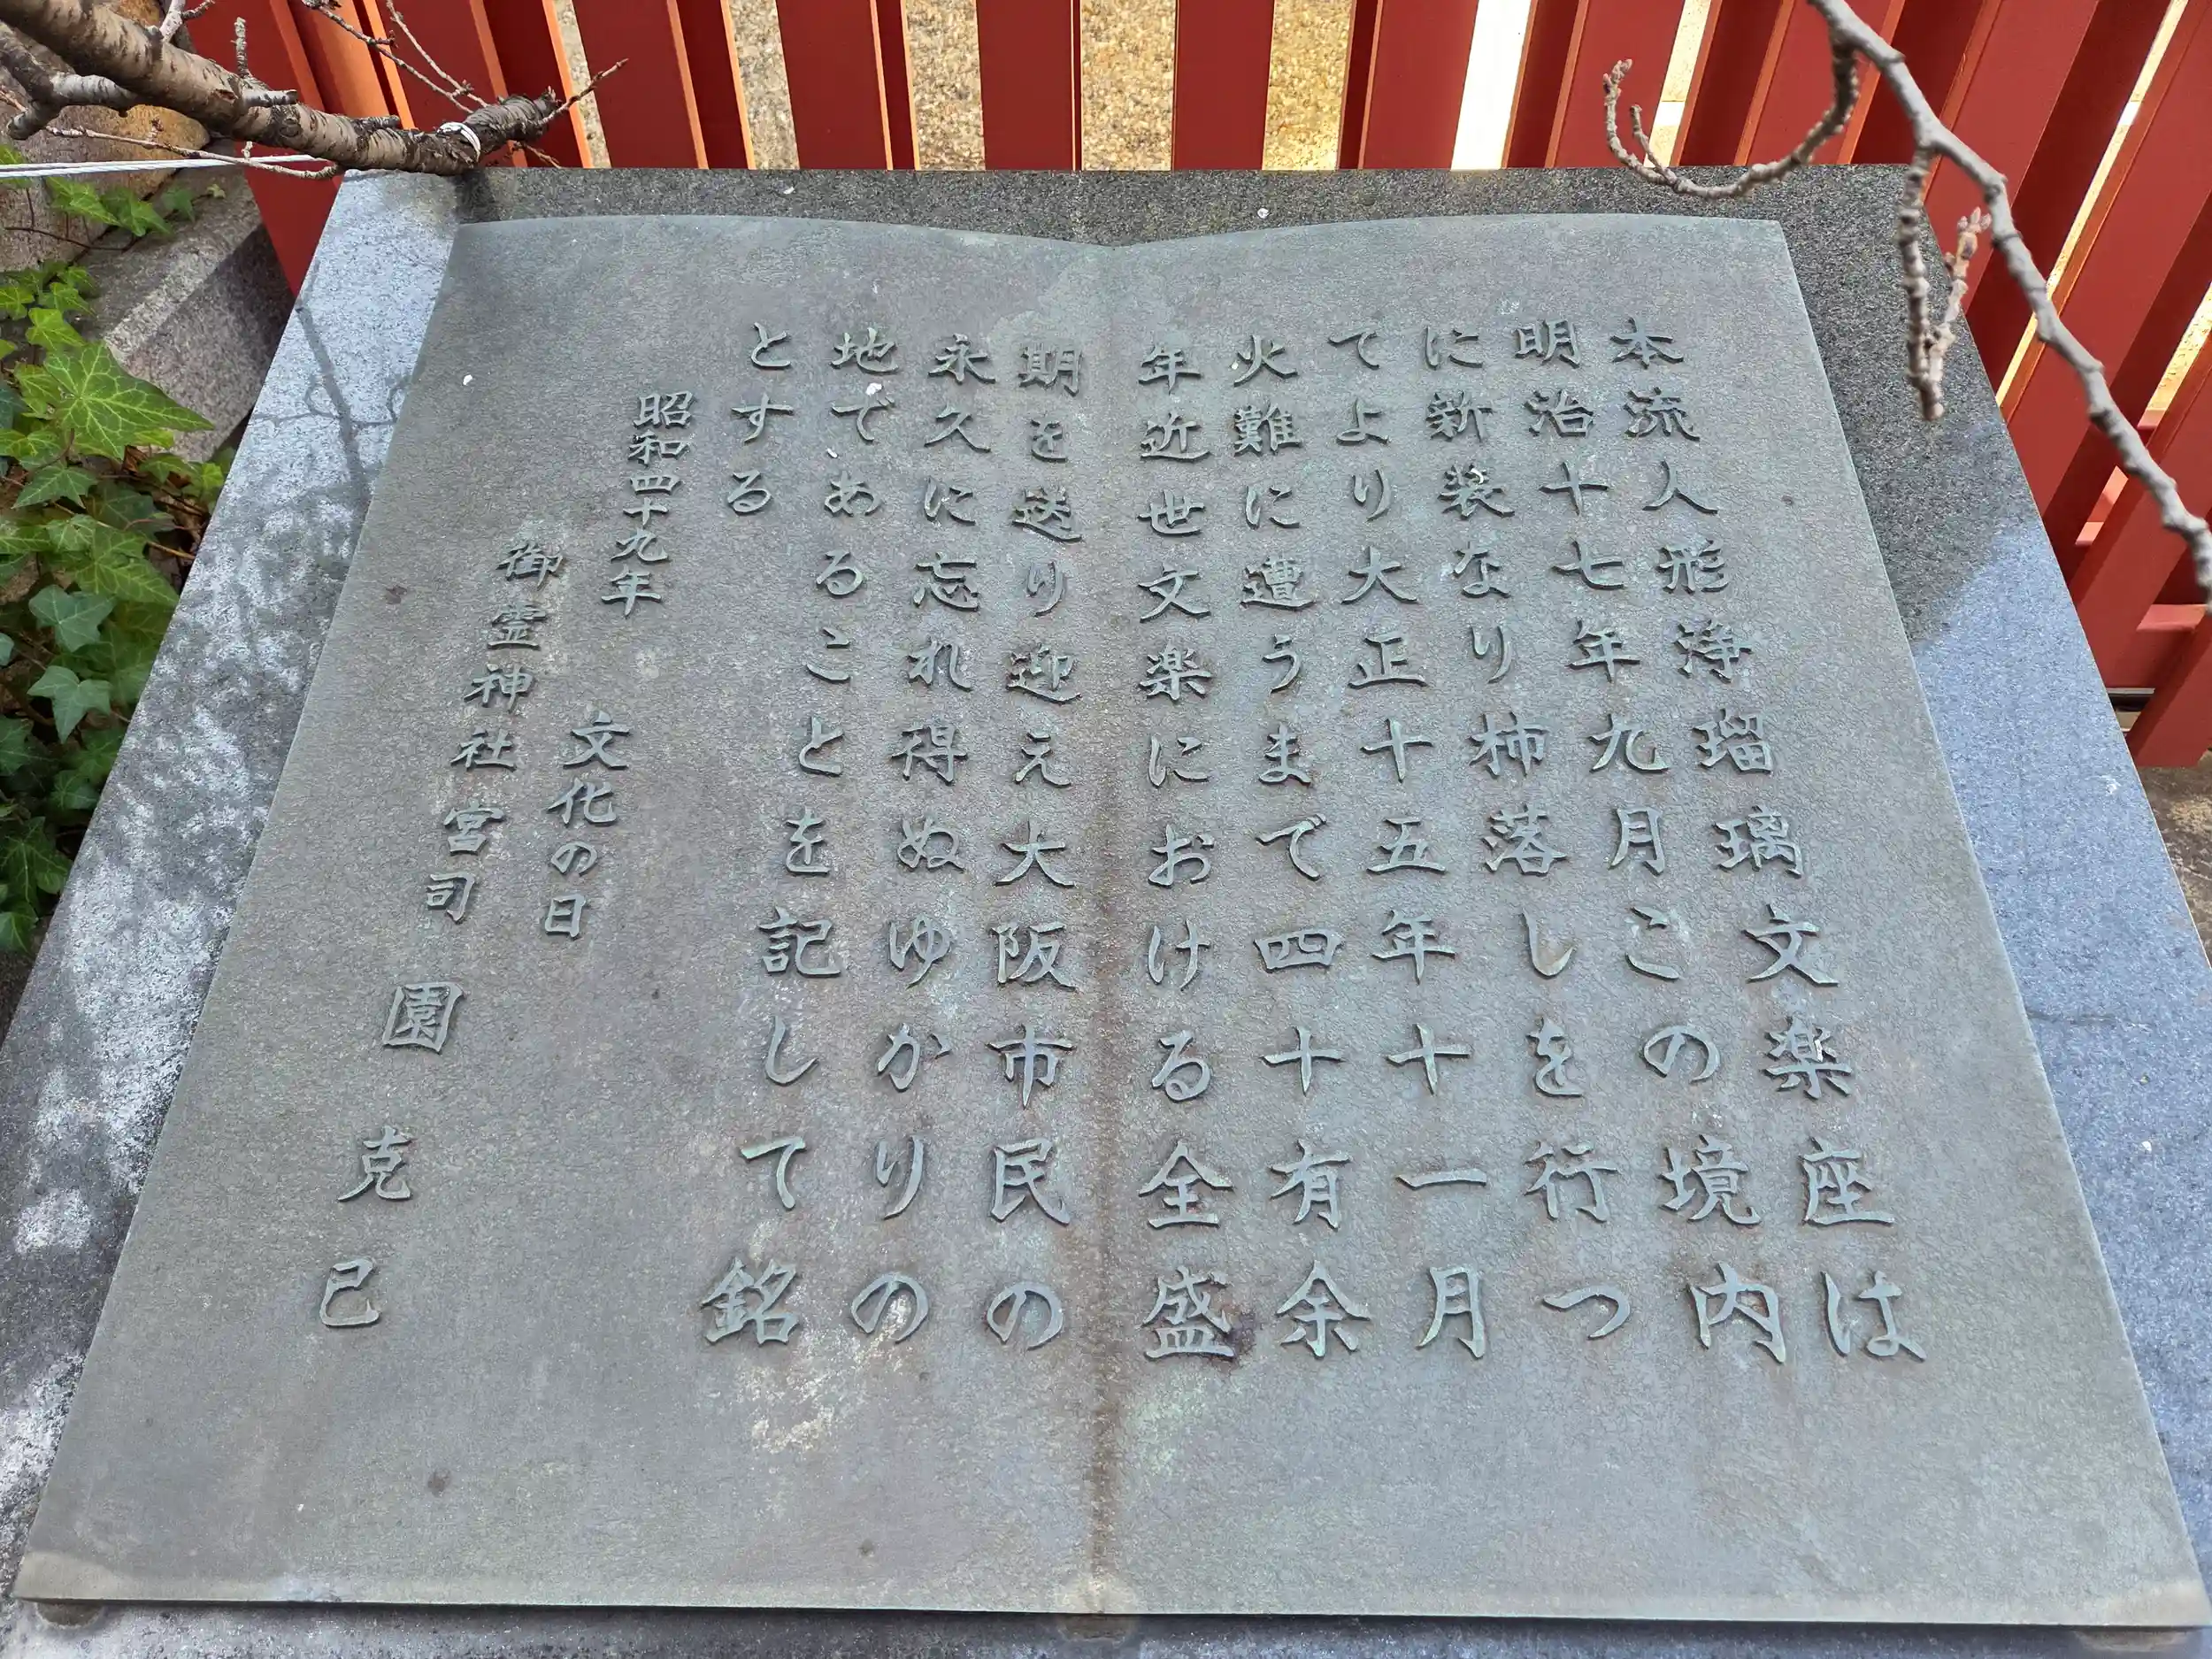 本流人形浄瑠璃文楽座は
明治十七年九月この境内
に新装なり柿落しを行つ
てより大正十五年十一月
火難に遭うまで四十有余
年近世文楽における全盛
期を送り迎え大阪市民の
永久に忘れ得ぬゆかりの
地であることを記して銘
とする
昭和四十九年
文化の日
御霊神社宮司 園克己